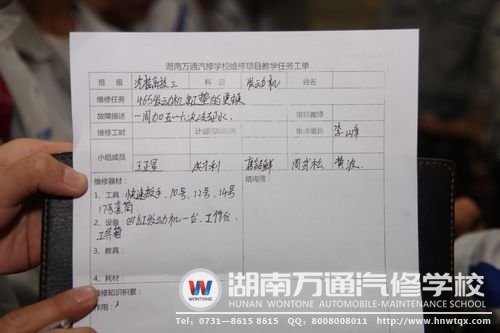 湖南万通汽修学校维修项目教学任务工单
班 级 科 目 发动机 姓名
维修任务 465发动机缸垫的更换
故障描述 一周加五一六次冷却水, 指导教师
维修工时 计划 组长 李
小组成员
王正军 周 松 黄波
维修器材: 结构图:
1、工具:快速扳手、10号、12号、14号
17号套筒
2、设备:四缸发动机一台、工作台、
工具箱
3、教具:
4、耗材:
维修知识积累:
作用:
WONTONE
湖南万通汽修学校
HUNAN WONTONE AUTOMOBILE MAINTENANCE SCHOOL
Tel:0731—8615 8615 QQ:8008008011 http://www.hnwtqx.com